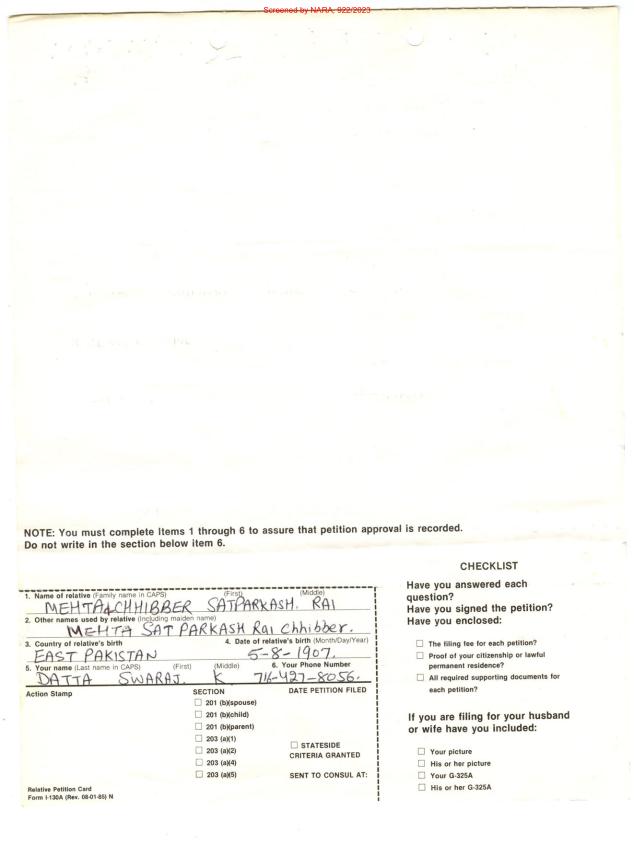 Screened by NARA, 9/22/2023
NOTE: You must complete items 1 through 6 to assure that petition approval is recorded.
Do not write in the section below item 6.
1. Name of relative (Family name in CAPS) (First) (Middle)
MEHTA & CHHIBBER SATPARKASH. RAI
2. Other names used by relative (Including maiden name)
MEHTA SAT PARKASH Rai Chhibber.
3. Country of relative's birth 4. Date of relative's birth (Month/Day/Year)
EAST PAKISTAN 5-8-1907.
5. Your name (Last name in CAPS) (First) (Middle) 6. Your Phone Number
DATTA SWARAJ. K 716-427-8056.
Action Stamp SECTION DATE PETITION FILED
201 (b)(spouse)
201 (b)(child)
201 (b)(parent)
203 (a)(1)
203 (a)(2)
203 (a)(4)
203 (a)(5)
STATESIDE
CRITERIA GRANTED
SENT TO CONSUL AT:
Relative Petition Card
Form I-130A (Rev. 08-01-85) N
CHECKLIST
Have you answered each
question?
Have you signed the petition?
Have you enclosed:
The filing fee for each petition?
Proof of your citizenship or lawful
permanent residence?
All required supporting documents for
each petition?
If you are filing for your husband
or wife have you included:
Your picture
His or her picture
Your G-325A
His or her G-325A